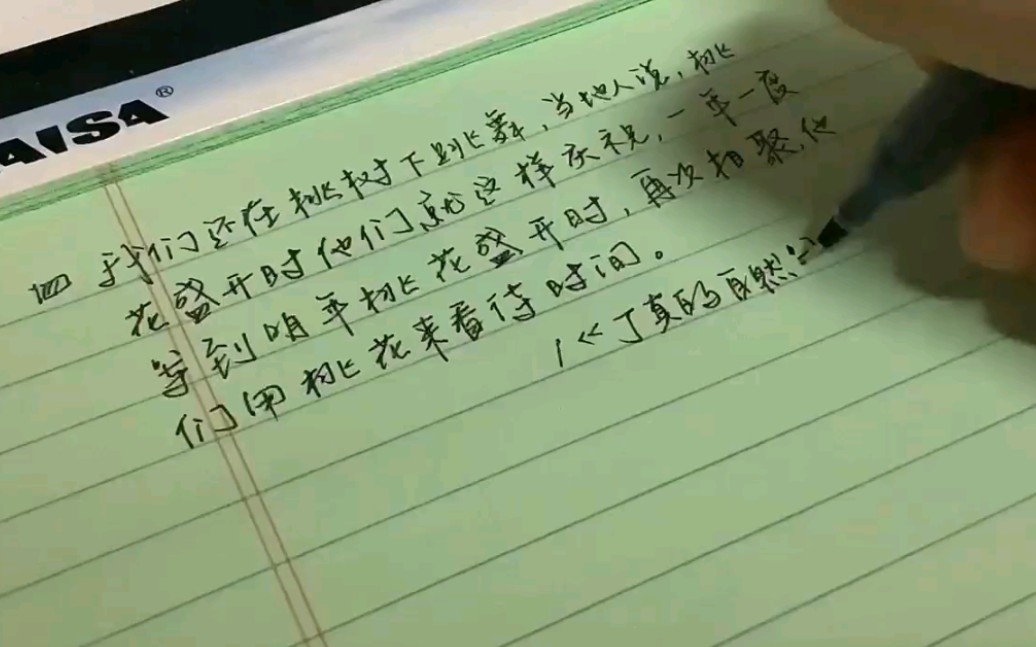 AISA®
四 我们还在桃树下跳舞,当地人说,桃
花盛开时他们就这样庆祝,一年一度
等到明年桃花盛开时,再次相聚,他
们用桃花来看待时间。
/《丁真的自然